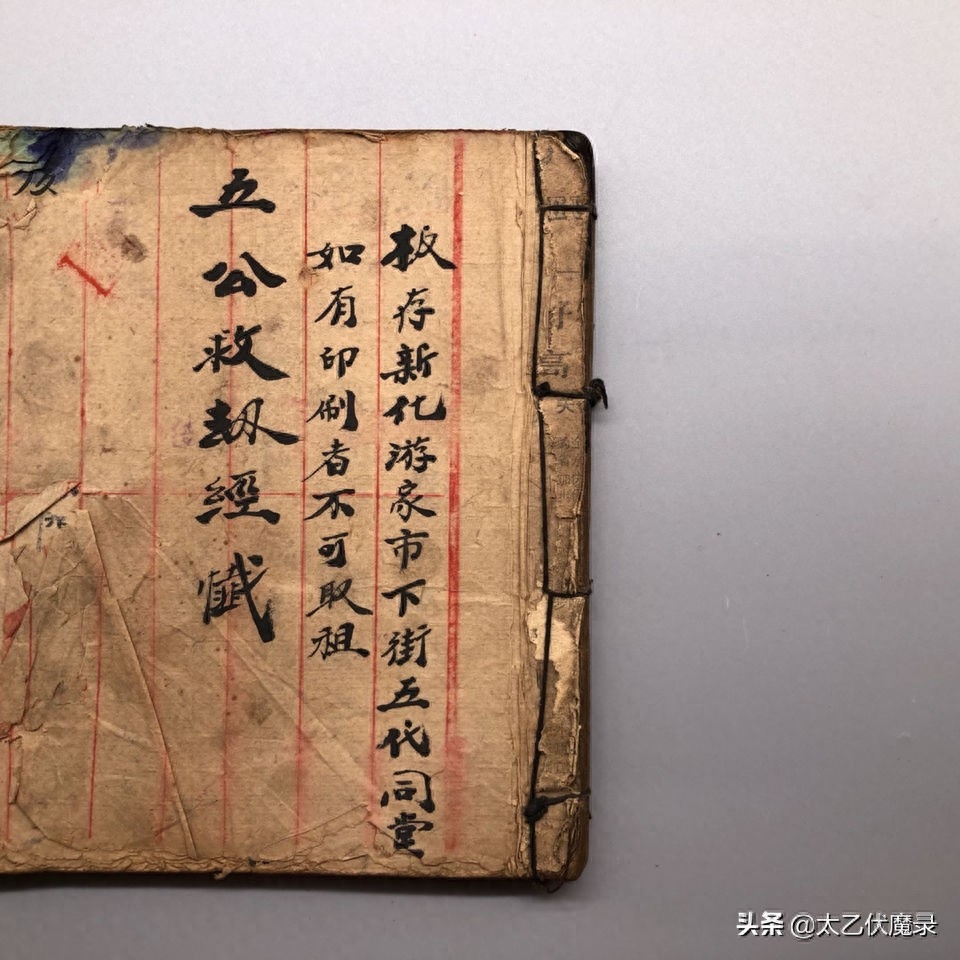 板存新化游家市下街五代同堂
如有印刷者不可取祖
五公救刼經懺
头条 @太乙伏魔录